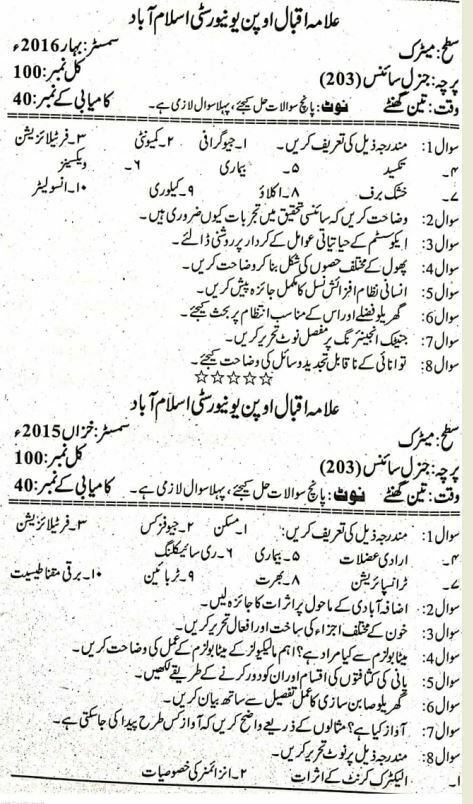 علامہ اقبال اوپن یونیورسٹی اسلام آباد
سطح: میٹرک سمسٹر: بہار 2016ء
پرچہ: جنرل سائنس (203) کل نمبر: 100
وقت: تین گھنٹے نوٹ: پانچ سوالات حل کیجئے، پہلا سوال لازمی ہے۔ کامیابی کے نمبر: 40
سوال 1: مندرجہ ذیل کی تعریف کریں۔ ۱۔ جیوگرافی ۲۔ کمیونٹی ۳۔ فرٹیلائزیشن
۴۔ تکسید ۵۔ بیماری ۶۔ ویکسینز
۷۔ خشک برف ۸۔ اکلاؤ ۹۔ کیلوری ۱۰۔ انسولیٹر
سوال 2: وضاحت کریں کہ سائنسی تحقیق میں تجربات کیوں ضروری ہیں۔
سوال 3: ایکوسسٹم کے حیاتیاتی عوامل کے کردار پر روشنی ڈالئے۔
سوال 4: پھول کے مختلف حصوں کی شکل بنا کر وضاحت کریں۔
سوال 5: انسانی نظام افزائش نسل کا مکمل جائزہ پیش کریں۔
سوال 6: گھریلو فضلے اور اس کے مناسب انتظام پر بحث کیجئے۔
سوال 7: جنیٹک انجینئرنگ پر مفصل نوٹ تحریر کریں۔
سوال 8: توانائی کے ناقابل تجدید وسائل کی وضاحت کیجئے۔
☆☆☆☆☆
علامہ اقبال اوپن یونیورسٹی اسلام آباد
سطح: میٹرک سمسٹر: خزاں 2015ء
پرچہ: جنرل سائنس (203) کل نمبر: 100
وقت: تین گھنٹے نوٹ: پانچ سوالات حل کیجئے، پہلا سوال لازمی ہے۔ کامیابی کے نمبر: 40
سوال 1: مندرجہ ذیل کی تعریف کریں: ۱۔ مسکن ۲۔ جیوفزکس ۳۔ فرٹیلائزیشن
۴۔ ارادی عضلات ۵۔ بیماری ۶۔ ری سائیکلنگ
۷۔ ٹرانسپائریشن ۸۔ بھرت ۹۔ ٹربائین ۱۰۔ برقی مقناطیسیت
سوال 2: اضافہ آبادی کے ماحول پر اثرات کا جائزہ لیں۔
سوال 3: خون کے مختلف اجزاء کی ساخت اور افعال تحریر کریں۔
سوال 4: میٹابولزم سے کیا مراد ہے؟ اہم مالیکیولز کے میٹابولزم کے عمل کی وضاحت کریں۔
سوال 5: پانی کی کثافتوں کی اقسام اور ان کو دور کرنے کے طریقے لکھیں۔
سوال 6: گھریلو صابن سازی کا عمل تفصیل سے ساتھ بیان کریں۔
سوال 7: آواز کیا ہے؟ مثالوں کے ذریعے واضح کریں کہ آواز کس طرح پیدا کی جا سکتی ہے۔
سوال 8: مندرجہ ذیل پر نوٹ تحریر کریں۔
۱۔ الیکٹرک کرنٹ کے اثرات ۲۔ انزائمز کی خصوصیات